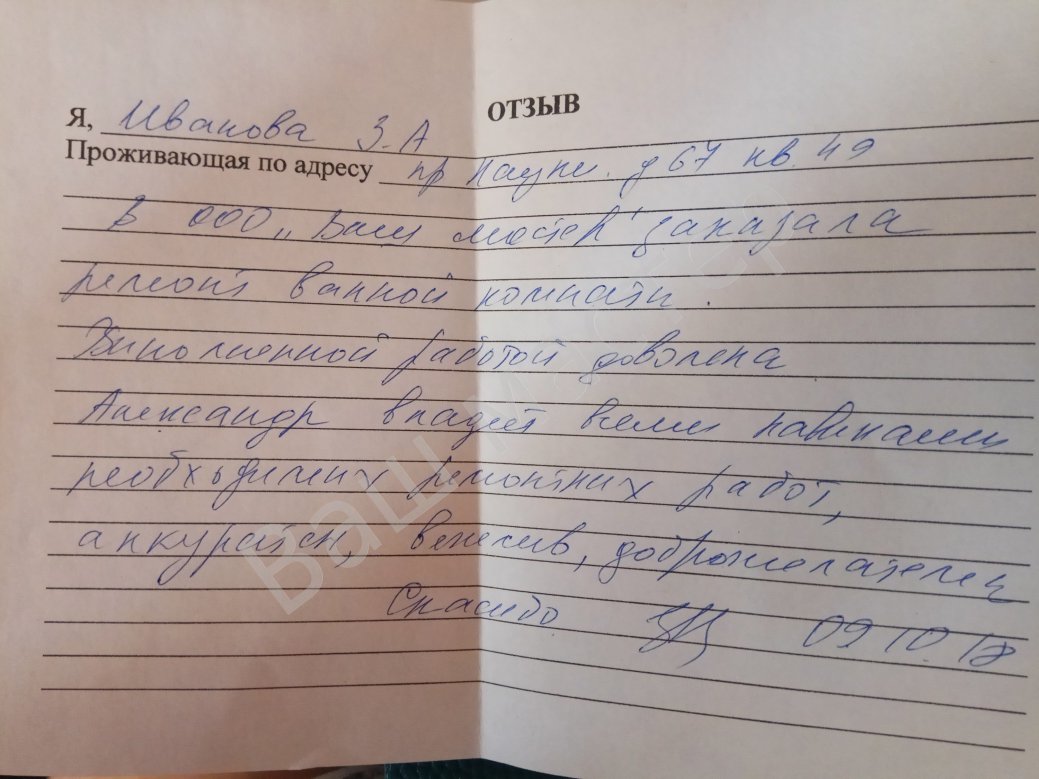 ОТЗЫВ
Я, Иванова З.А
Проживающая по адресу пр Науки. д 67 кв. 49
В ООО „Ваш мастер" заказала
ремонт ванной комнаты.
Выполненной работой довольна
Александр владеет всеми навыками
необходимых ремонтных работ,
аккуратен, вежлив, доброжелателен
Спасибо 09 10. 18
Ваш Мастер